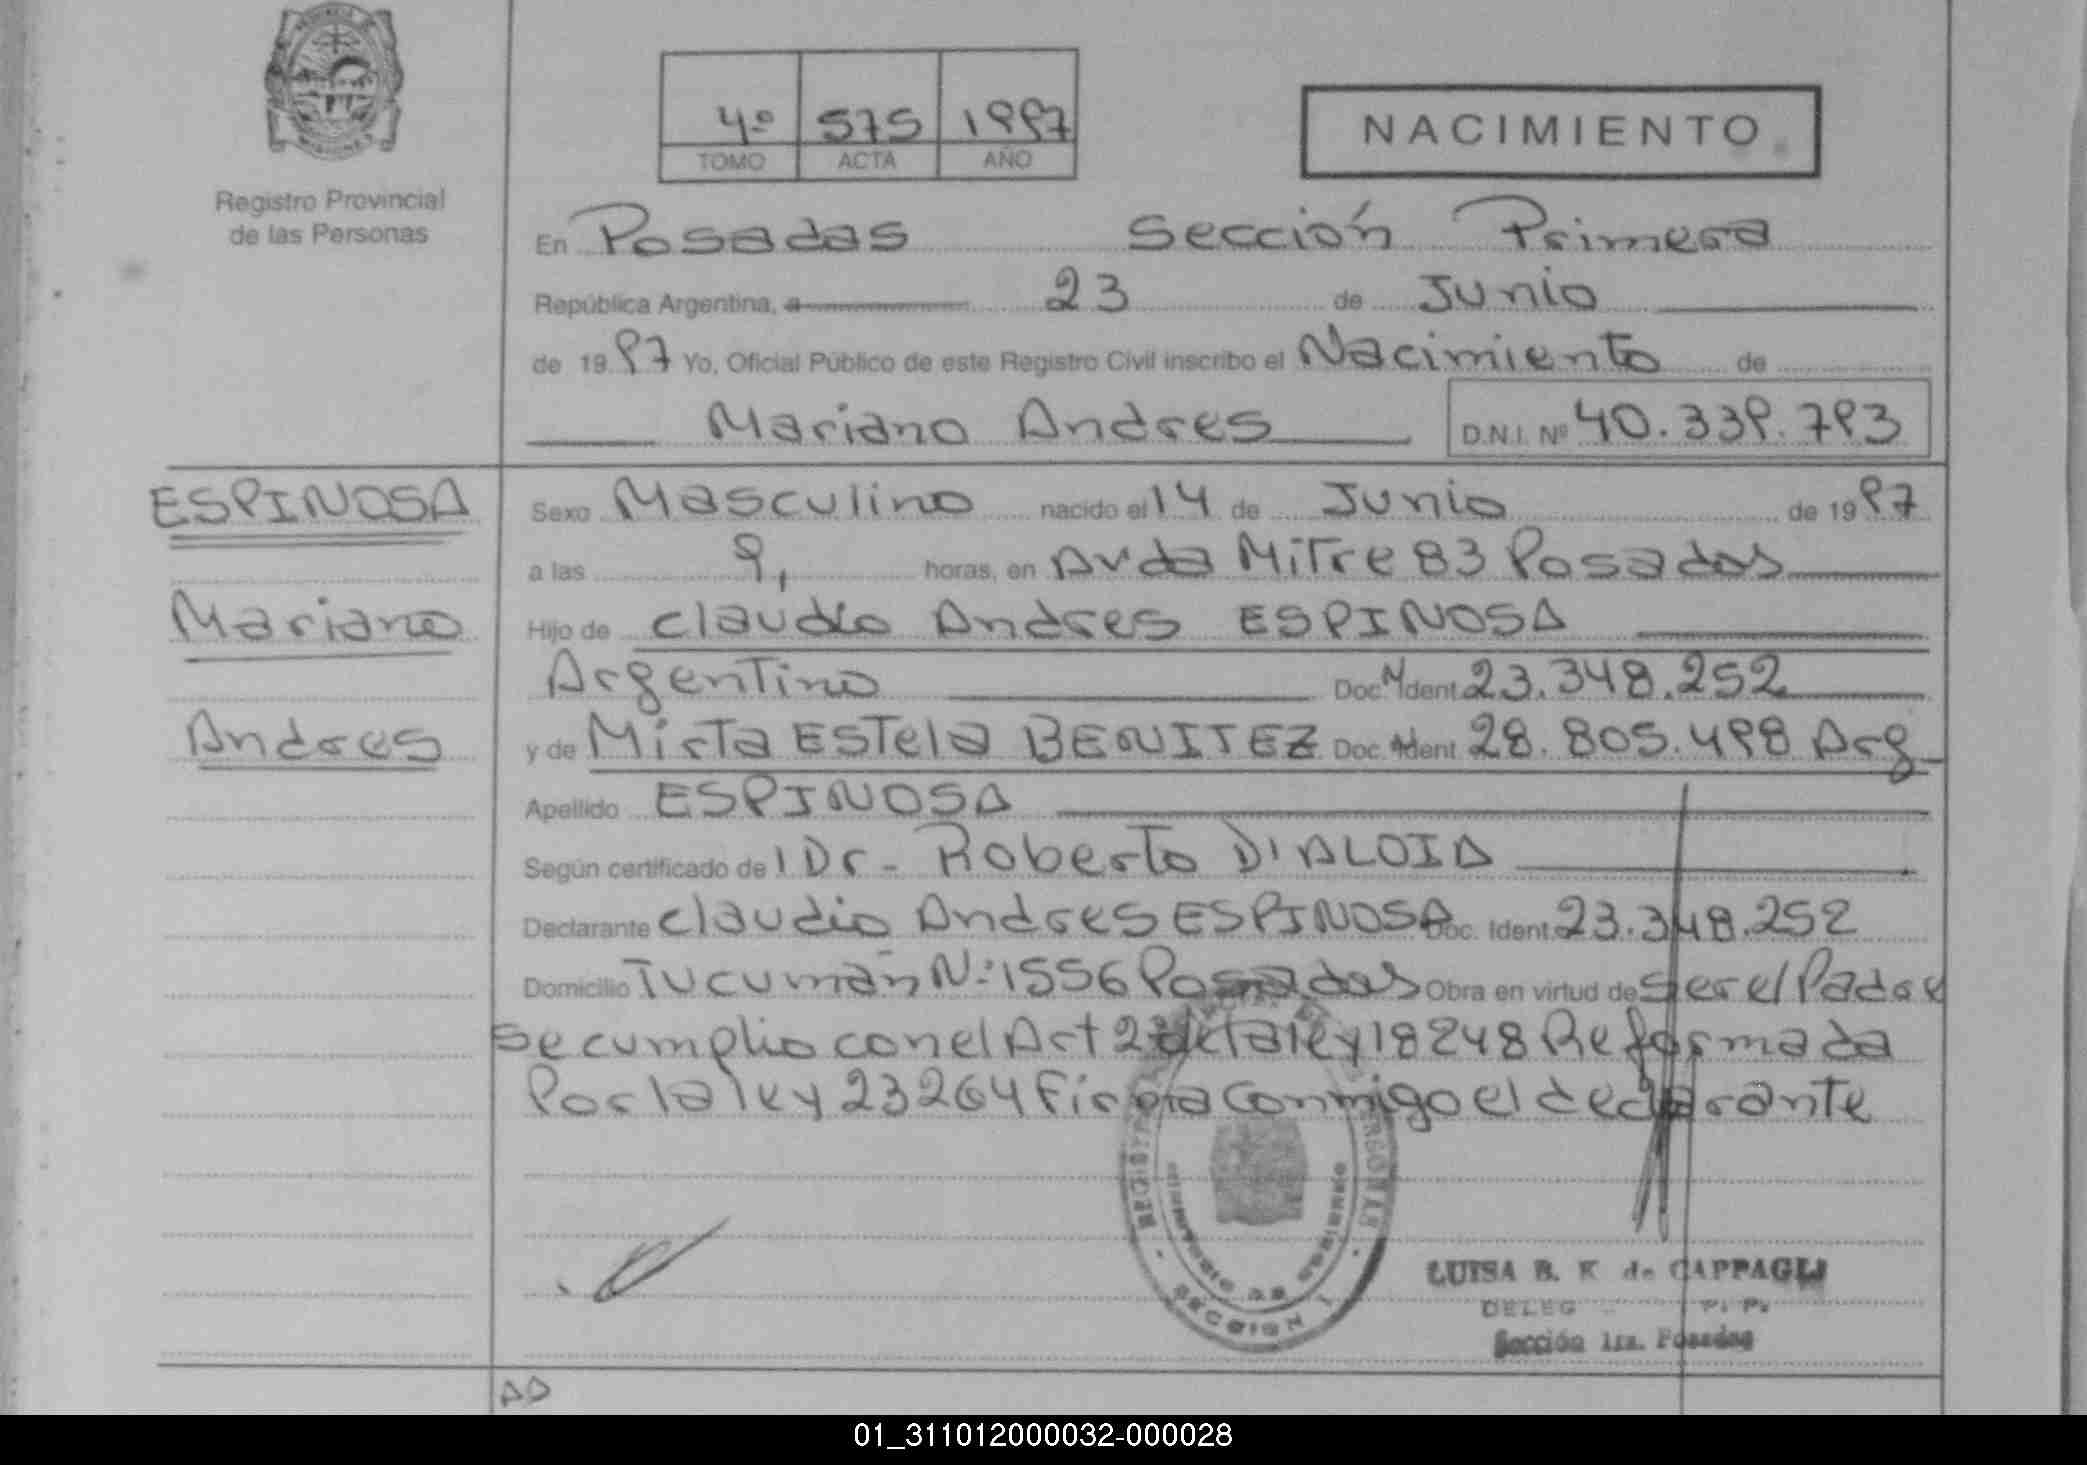 Registro Provincial
de las Personas
4º 575 1997
TOMO ACTA AÑO
NACIMIENTO
En Posadas Sección Primera
República Argentina, a 23 de Junio
de 1997 Yo, Oficial Público de este Registro Civil inscribo el Nacimiento de
Mariano Andres D.N.I. Nº 40.339.793
ESPINOSA
Mariano
Andres
Sexo Masculino nacido el 14 de Junio de 1997
a las 9, horas, en Avda Mitre 83 Posadas
Hijo de Claudio Andres ESPINOSA
Argentino Doc. Ident. 23.348.252
y de Mirta EStela BENITEZ Doc. Ident. 28.805.498 Arg
Apellido ESPINOSA
Según certificado de l Dr - Roberto D'ALOIA
Declarante Claudio Andres ESPINOSA Doc. Ident. 23.348.252
Domicilio Tucumán Nº 1556 Posadas Obra en virtud de ser el Padre
Se cumplio con el Art 2º de la ley 18248 Reformada
Por la ley 23264 Firma Conmigo el declarante
SECCION 1
LUISA B. K de CAPPAGLI
DELEG
Sección 1ra. Posadas
AD
01_311012000032-000028